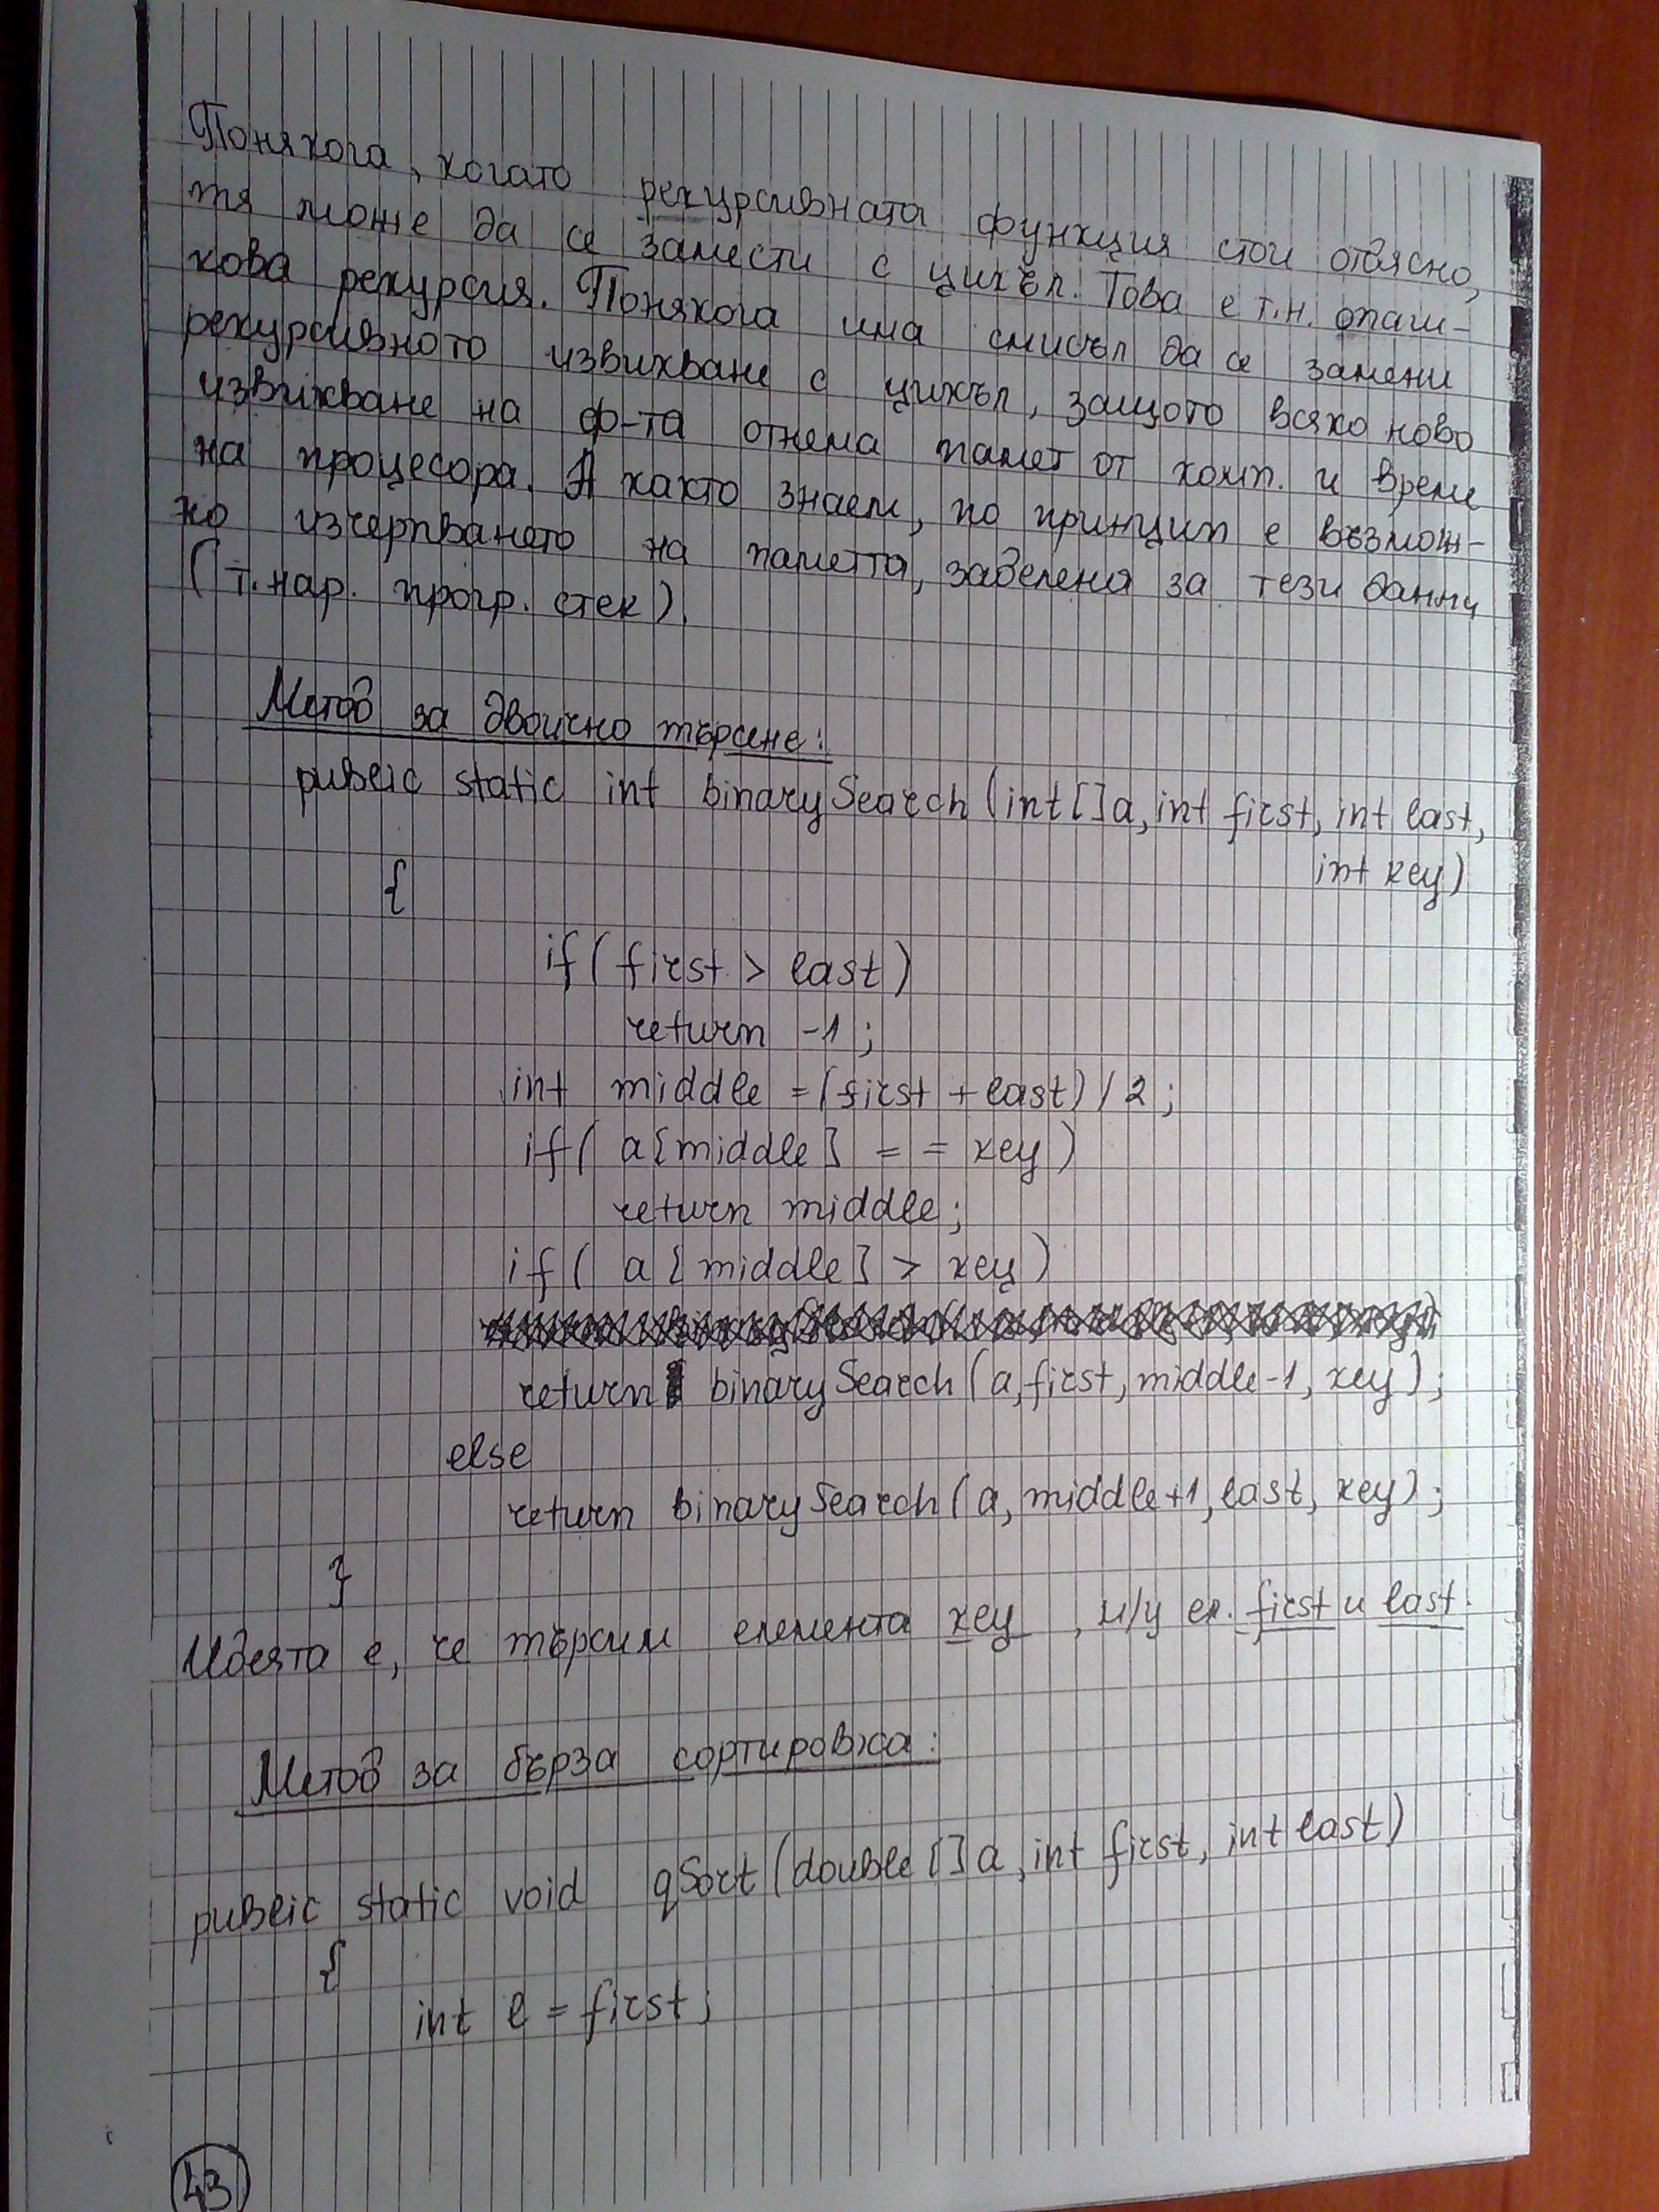 Понякога, когато рекурсивната функция стои отдясно,
тя може да се замести с цикъл. Това е т.н. опаш-
кова рекурсия. Понякога има смисъл да се замени
рекурсивното извикване с цикъл, защото всяко ново
извикване на ф-та отнема памет от комп. и време
на процесора. А както знаем, по принцип е възмож-
но изчерпването на паметта, заделена за тези данни
(т.нар. прогр. стек).
Метод за двоично търсене:
public static int binarySearch(int[]a, int first, int last,
int key)
{
if( first > last)
return -1;
int middle =(first + last)/2;
if( a[middle] = = key)
return middle;
if( a[middle] > key)
return binarySearch(a, first, middle-1, key);
else
return binarySearch(a, middle+1, last, key);
}
Идеята е, че търсим елемента key , м/у ел. first и last.
Метод за бърза сортировка:
public static void qSort(double[]a, int first, int last)
{
int l = first;
43